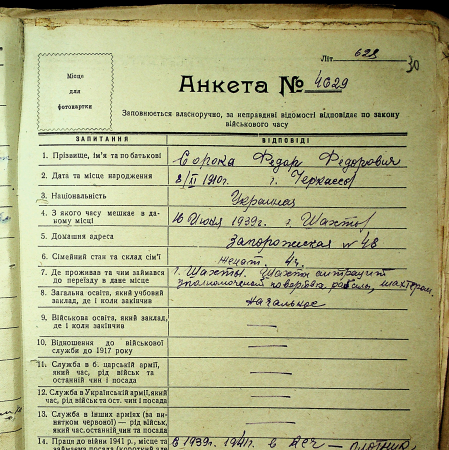 Літ. 628
30
Місце
для
фотокартки
Анкета № 4629
Заповнюється власноручно, за неправдиві відомості відповідає по закону
військового часу
ЗАПИТАННЯ ВІДПОВІДІ
1. Прізвище, ім'я та по батькові Сорока Федор Федорович
2. Дата та місце народження 8/II 1910г. г. Черкассы
3. Національність Украинец
4. З якого часу мешкає в да-
ному місці 16 Июля 1939г. г. Шахты
5. Домашня адреса Запорожская № 48
6. Сімейний стан та склад сім'ї женат. 4ч.
7. Де проживав та чим займався
до переїзду в дане місце г. Шахты. Шахта
8. Загальна освіта, який учбовий
заклад, де і коли закінчив начальное
9. Військова освіта, який заклад,
де і коли закінчив
10. Відношення до військової
служби до 1917 року
11. Служба в б. царській армії,
який час, рід військ та
останній чин і посада
12. Служба в Українській армії, який
час, рід військ та ост. чин і посада
13. Служба в інших арміях (за ви-
нятком червоної) — рід військ,
який час, останній чин та посада
14. Праця до війни 1941 р., місце та
займаєма посада (короткий в 1939г. 1941г. в — плотник,